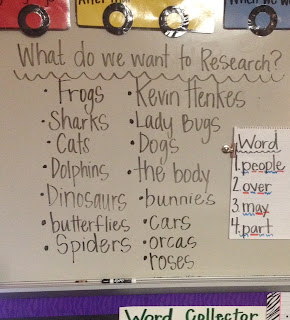 What do we want to Research?
• Frogs
• Sharks
• Cats
• Dolphins
• Dinosaurs
• butterflies
• Spiders
• Kevin Henkes
• Lady Bugs
• Dogs
• the body
• bunnies
• cars
• orcas
• roses
Word
1. people
2. over
3. may
4. part
Word Collector